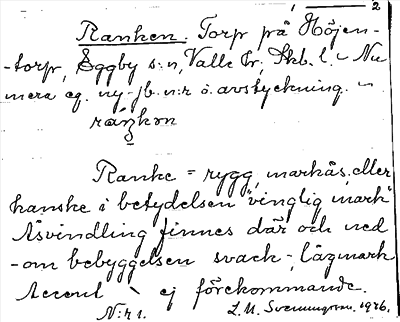 2
Ranken. Torp på Höjen-
-torp, Eggby s:n, Valle hr. Skb. l. - Nu
mera eg. ny-jb. n:r o. avstyckning. -
Ranke = rygg, markås. eller
kanske i betydelsen "vinglig mark"
Åsvindling finnes där och ned
-om bebyggelsen svack-, lågmark
Accent ` ej förekommande.
N:r 1. L. M. Svenungsson. 1926.